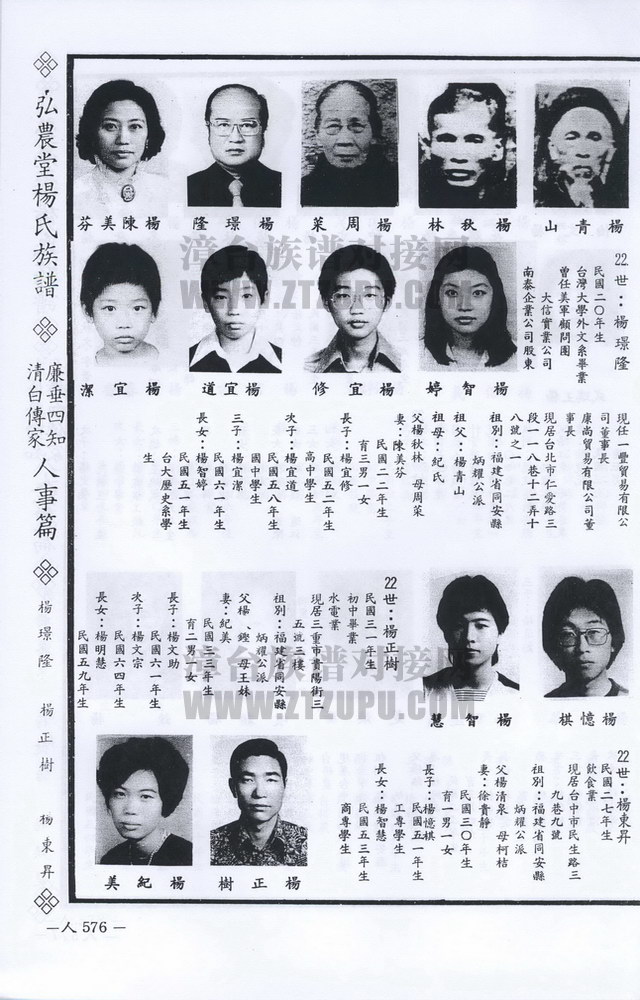 弘農堂楊氏族譜
廉垂四知
清白傳家
人事篇
楊璟隆
楊正樹
楊東昇
—人 576 —
楊青山
楊秋林
楊周菜
楊璟隆
楊陳美芬
22世：楊璟隆
民國二〇年生
台灣大學外文系畢業
曾任美軍顧問團
大信實業公司
南泰企業公司股東
楊智婷
楊宜修
楊宜道
楊宜潔
現任一豐貿易有限公
司董事長
康尚貿易有限公司董
事長
現居台北市仁愛路三
段一一八巷十二弄十
八號之一
祖別：福建省同安縣
炳耀公派
祖父：楊青山
祖母：紀氏
父楊秋林 母周菜
妻：陳美芬
民國二二年生
育三男一女
長子：楊宜修
民國五二年生
高中學生
次子：楊宜道
民國五八年生
國中學生
三子：楊宜潔
民國六一年生
長女：楊智婷
民國五一年生
台大歷史系學
生
楊憶棋
楊智慧
22世：楊東昇
民國二七年生
飲食業
現居台中市民生路三
九巷九號
祖別：福建省同安縣
炳耀公派
父楊清泉 母柯桔
妻：徐貴靜
民國三〇年生
育一男一女
長子：楊憶棋
民國五一年生
工專學生
長女：楊智慧
民國五三年生
商專學生
22世：楊正樹
民國三一年生
初中畢業
水電業
現居三重市貴陽街三
五號三樓
祖別：福建省同安縣
炳耀公派
父楊 、鏗 母王妹
妻：紀美
民國三三年生
育二男一女
長子：楊文助
民國六一年生
次子：楊文宗
民國六四年生
長女：楊明慧
民國五九年生
楊正樹
楊紀美
漳台族谱对接网
WWW.ZTZUPU.COM
漳台族谱对接网
WWW.ZTZUPU.COM